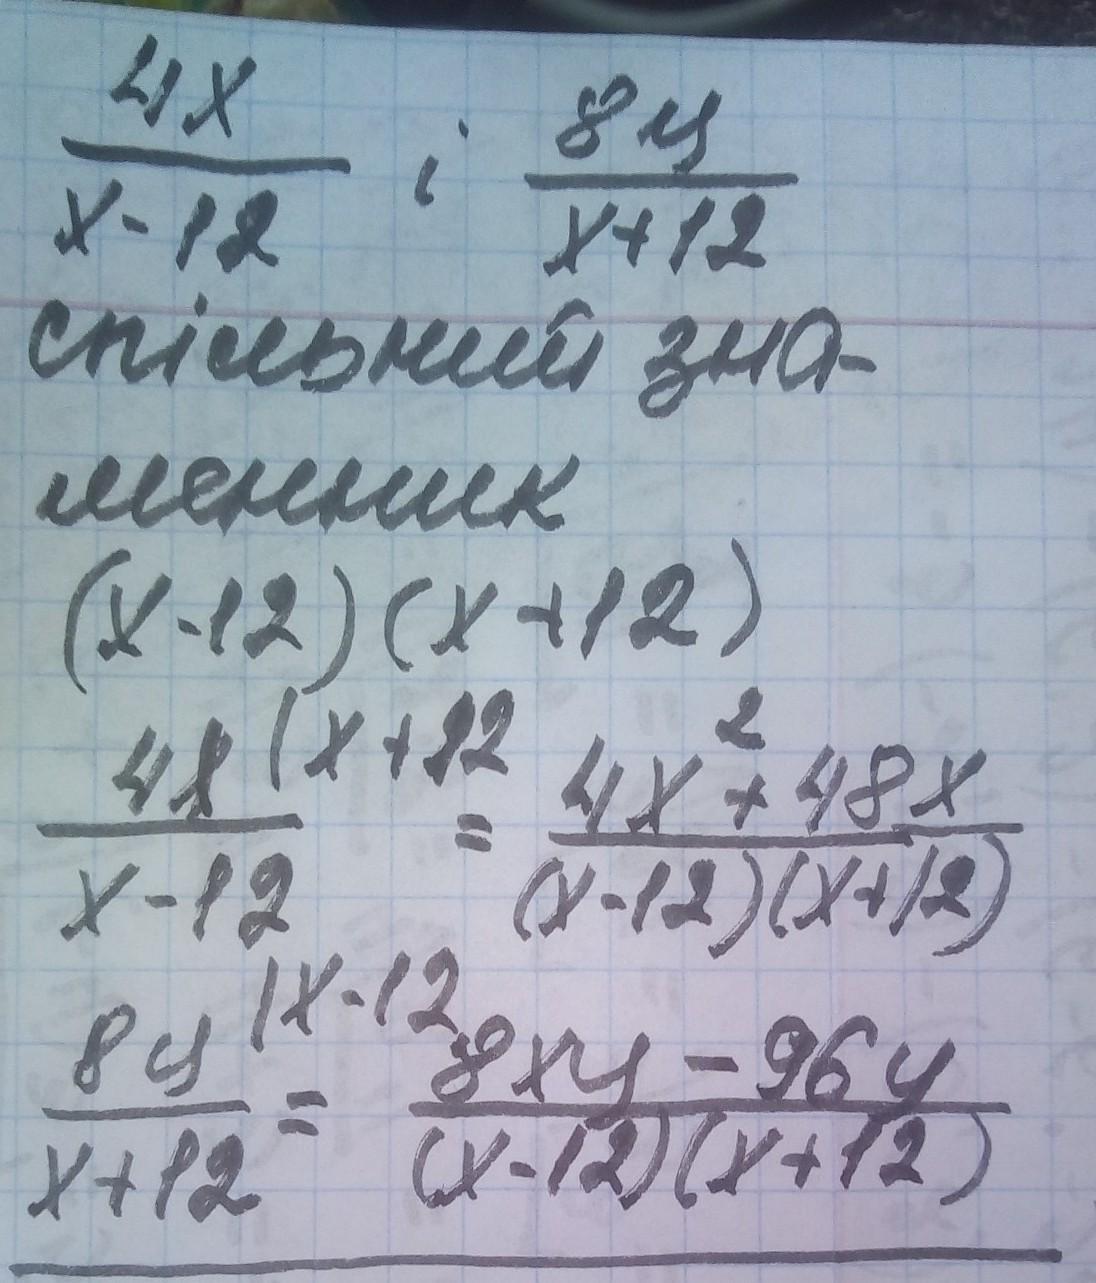 4x/(x-12) і 8y/(x+12)
спільний зна-
менник
(x-12)(x+12)
4x/(x-12) |x+12 = (4x²+48x)/((x-12)(x+12))
8y/(x+12) |x-12 = (8xy-96y)/((x-12)(x+12))